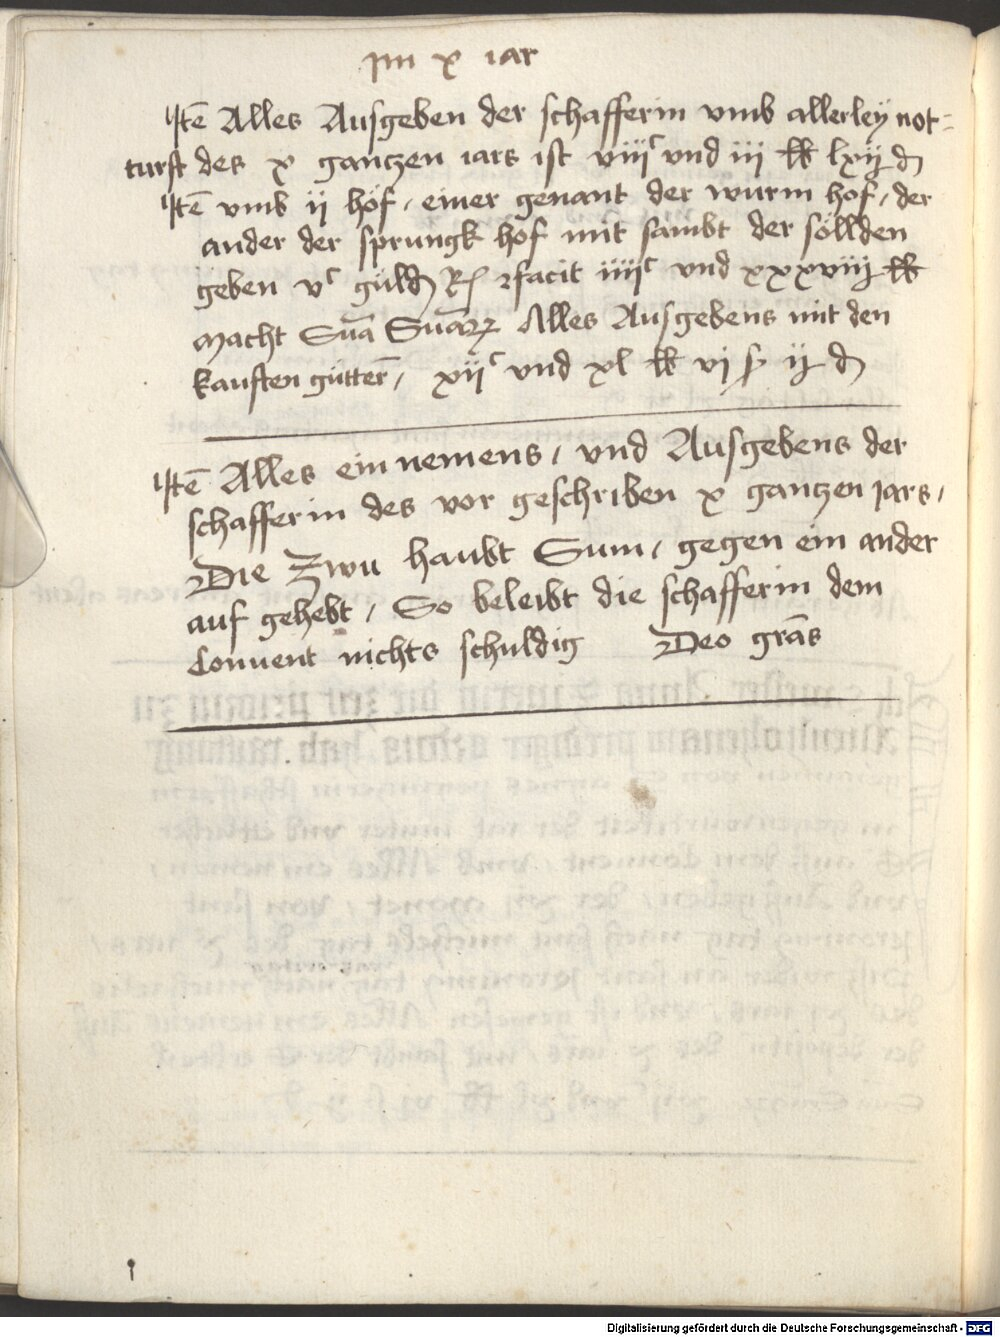 Im x iar
Itē Alles Ausgeben der schafferin vmb allerley not=
turft des x gantzen iars ist viijᶜ vnd iij lb lxij d
Itē vmb ij höf, einer genant der wurm hof, der
ander der sprungk hof mit sambt der söllden
geben vᶜ guld R facit iiijᶜ vnd xxxviij lb
macht Suā Suāꝝ Alles Ausgebens mit den
kauften gütterē, xijᶜ vnd xl lb vj ß ij d
Itē Alles ein nemens, vnd Ausgebens der
schafferin des vor geschriben x gantzen jars,
Die Zwu haubt Sum, gegen ein ander
auf gehebt, So beleibt die schafferin dem
Conuent nichts schuldig Deo grās
Digitalisierung gefördert durch die Deutsche Forschungsgemeinschaft - DFG